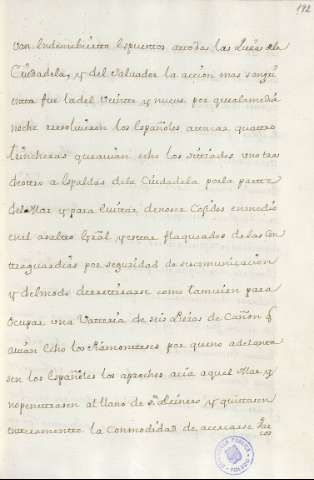 192
van Indemibiento Espuestos atodas las Luias dela
Ciudadela, y del Valuador la acción mas sangri
enta fue la del Veinte y nueve por que alamedia
noche resolvieron los Españoles atacar quatro
trincheras que avian echo los sitiados uno tras
de otro a Espaldas dela Ciudadela por la parte
del Mar y para Evitar de no ser Cojidos en medio
en el asalto Gral y estar flaqueados de las Con
traguardias por seguridad de su comunicacion
y del modo de retirarse como tamvien para
Ocupar una Vatteria de seis Piezas de Cañon q
avian Echo los Piamonteses por que no adelanta
sen los Españoles los aproches acia aquel Mar y
no penetrasen al llano de y quittasen
enteramente la Commodidad de acercarse
BIBLIOTECA PUBLICA
TOLEDO